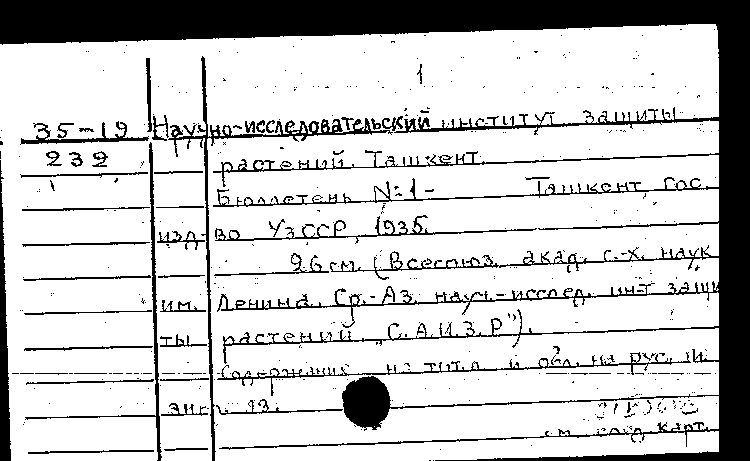 1
35-19 Научно-исследовательский институт защиты
232 растений. Ташкент.
Бюллетень №1- Ташкент, Гос.
изд-во УзССР, 1935.
26 см. (Всесоюз. акад. с.-х. наук
им. Ленина. Ср.-Аз. науч.-исслед. ин-т защи
ты растений „С.А.И.З.Р").
Содержание на тит. л. и обл. на рус. и
англ. яз.
см. след. карт.